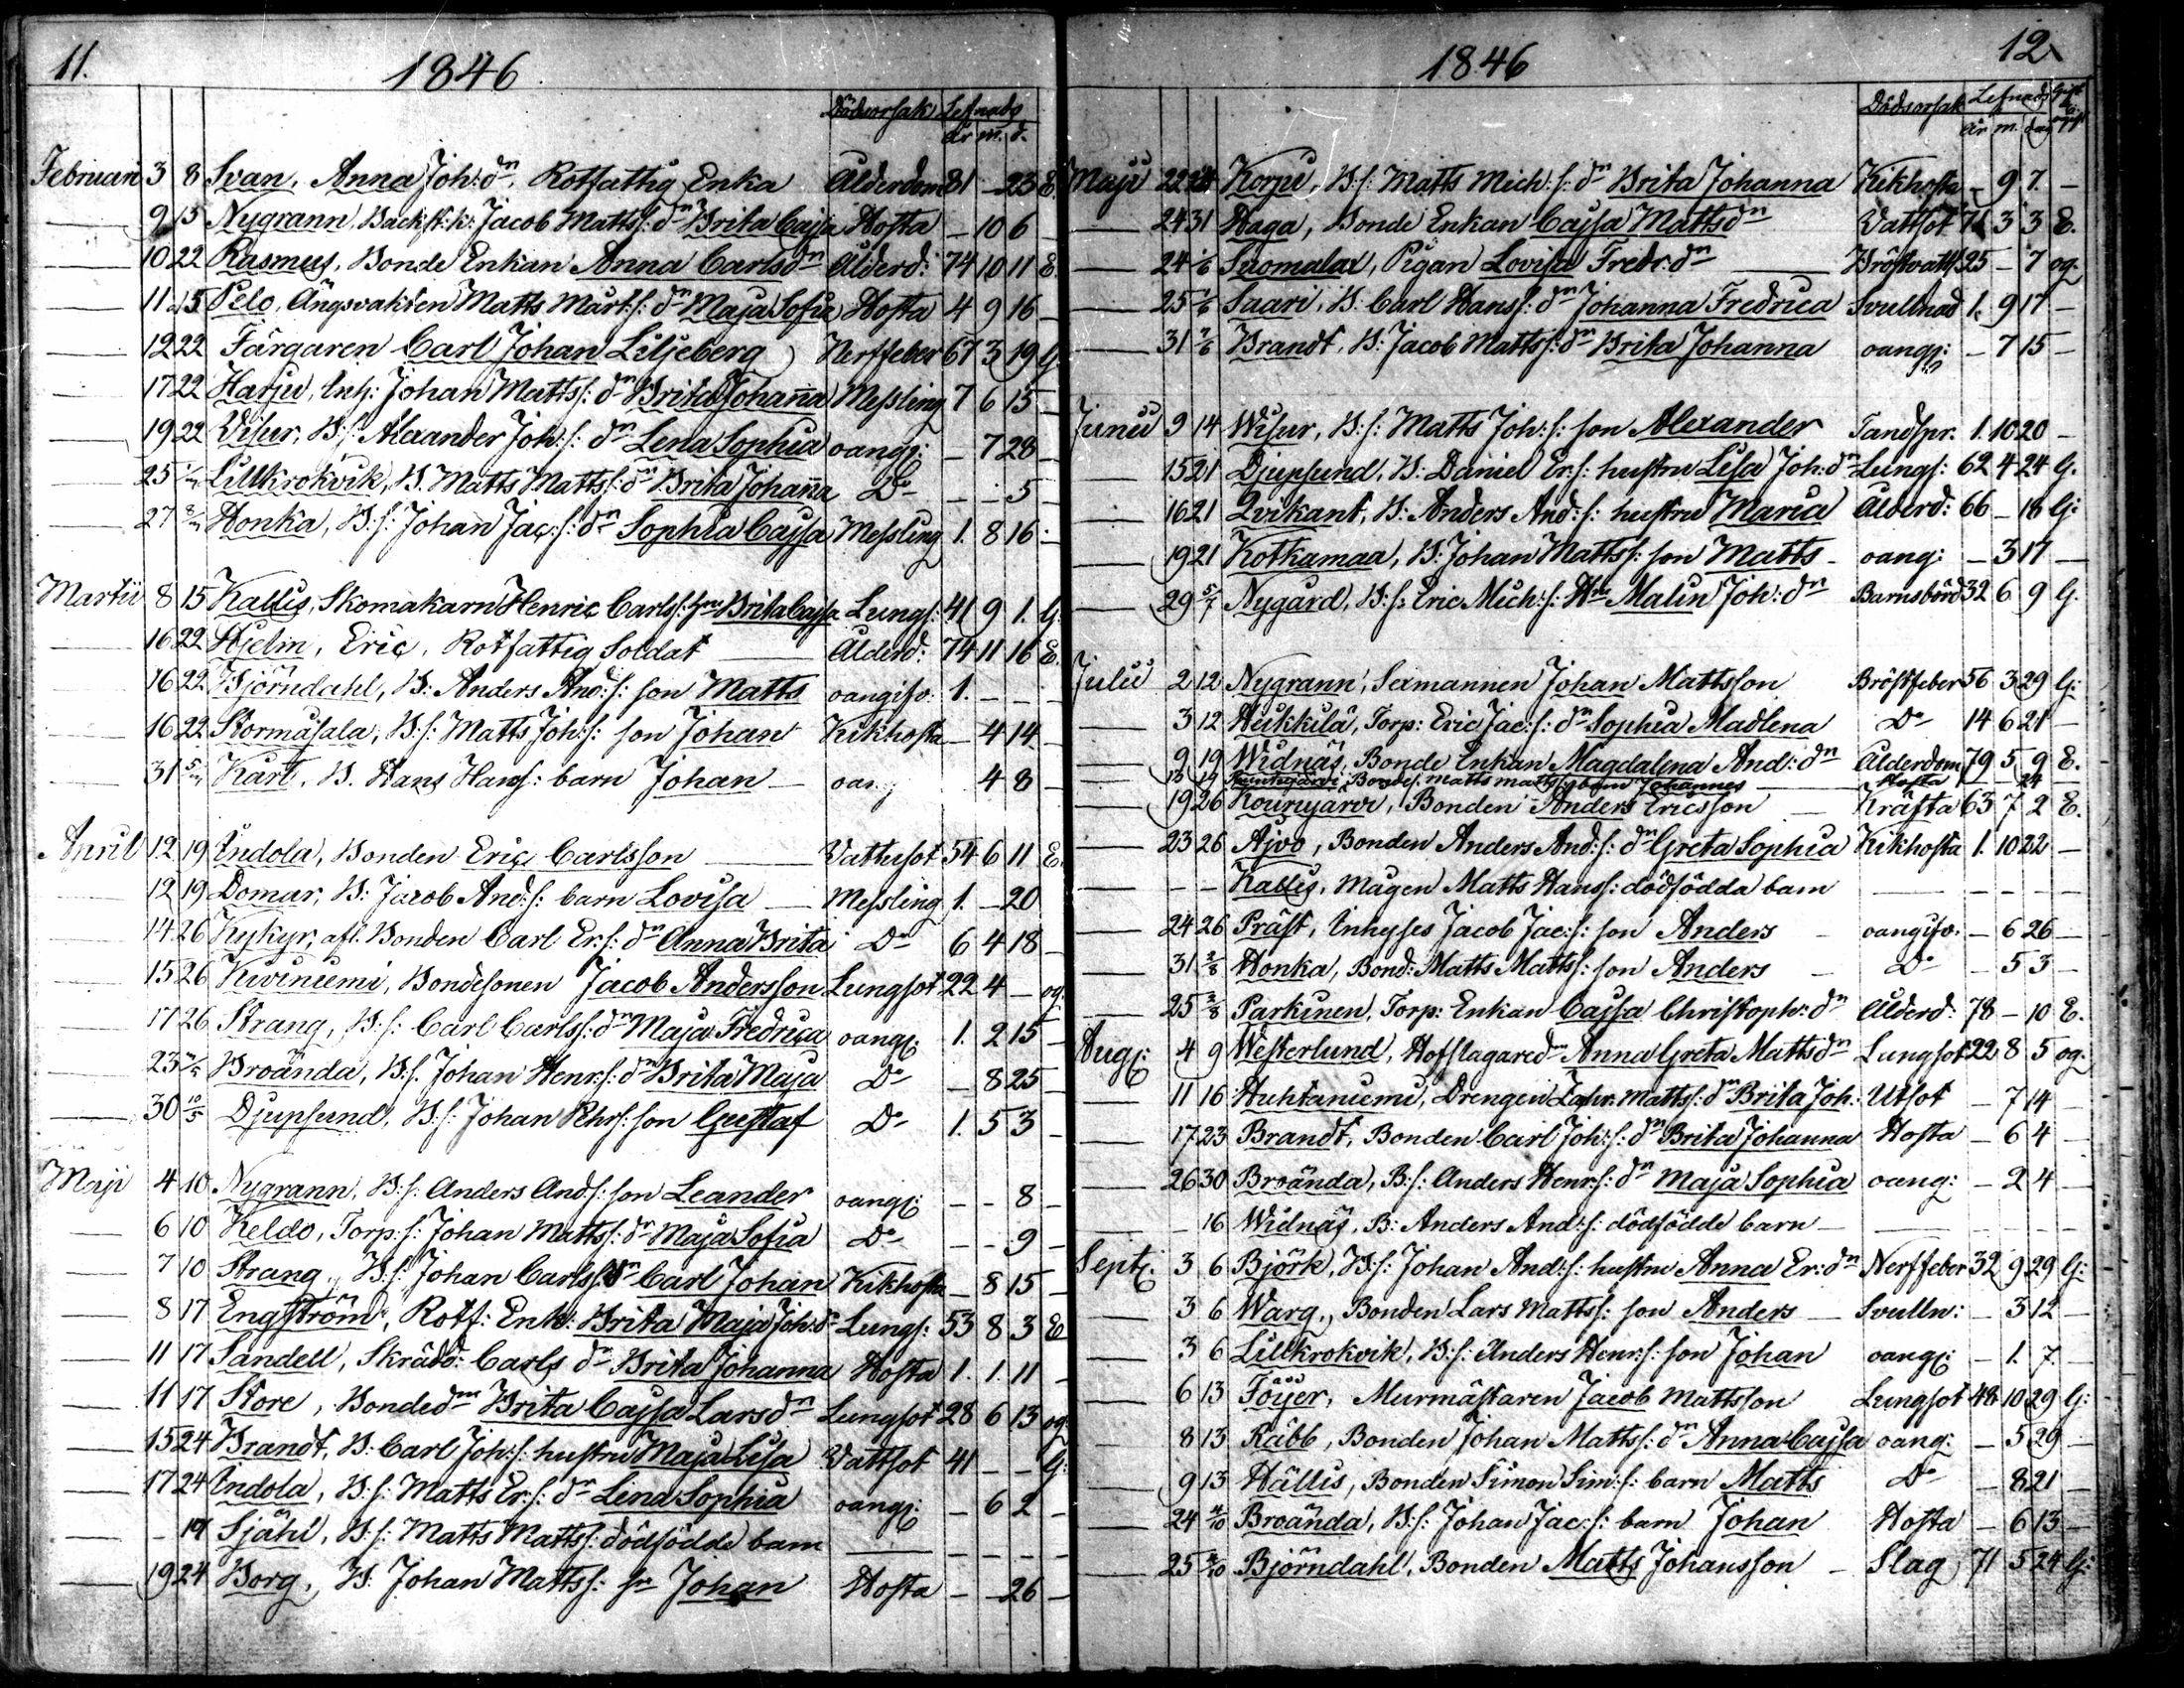 11.
1846
Dödsorsak Lefnads
år m. d.
Februari 3 8 Svan, Anna Joh:dr. Rotfattig Enka Ålderdom 81 - 23 E.
9 15 Nygrann, Backst.k: Jacob Matts: dr Brita Cajsa Hosta - 10 6 -
10 22 Rasmus, Bonde Enkan Anna Carlsdr Ålderd: 74 10 11 E.
11 15 Pelo, Ängsvakten Matts Mårt:s: dr Maja Sofia Hosta 4 9 16 -
12 22 Färgaren Carl Johan Liljeberg Nerffeber 67 3 19 G.
17 22 Harju, Inh: Johan Matts: dr Brita Johanna Messling 7 6 15 -
19 22 Wisur, B:s: Alexander Joh:s: dr Lena Sophia oangf: - 7 28 -
25 Lillkrokvik, B. Matts Matts: dr Brita Johanna Do - - 5 -
27 Honka, B:s: Johan Jac:s: dr Sophia Cajsa Messling 1. 8 16 -
Martii 8 15 Kallis, Skomakarn Henric Carls: Brita Cajsa Lungs: 41 9 1. G.
16 22 Hjelm, Eric, Rotfattig Soldat Ålderd: 74 11 16 E.
16 22 Björndahl, B: Anders And:s: son Matts oangifv. 1. - - -
16 22 Stormåsala, B:s: Matts Joh:s: son Johan Kikhosta - 4 14 -
31 Karl, B. Hans Hans: barn Johan - 4 8 -
April 12 19 Indola, Bonden Eric Carlsson Vattusot 54 6 11 E.
12 19 Domar, B: Jacob And:s: barn Lovisa Messling 1. - 20
14 26 Kykyr, afl. Bonden Carl Er:s: dr Anna Brita Do 6 4 18 -
15 26 Kiviniemi, Bondesonen Jacob Andersson Lungsot 22 4 - og.
17 26 Strang, B:s: Carl Carls: dr Maja Fredrica oangf: 1. 2 15 -
23 Broända, B:s. Johan Henr:s: dr Brita Maja Do - 8 25 -
30 10/5 Djupsund, B:s: Johan Pehrs: son Gustaf Do 1. 5 3 -
Maji 4 10 Nygrann, B:s: Anders Ands: son Leander oangf: - - 8 -
6 10 Keldo, Torp:s: Johan Matts: dr Maja Sofia Do - - 9 -
7 10 Strang, B:s: Johan Carls: Carl Johan Kikhosta - 8 15 -
8 17 Engström, Rotf: Enk: Brita Maja Joh:dr Lungs: 53 8 3 E
11 17 Sandell, Skrädd: Carls dr Brita Johanna Hosta 1. 1. 11 -
11 17 Store, Bondedn Brita Cajsa Larsdr Lungsot 28 6 13 og.
15 24 Brandt, B: Carl Joh:s: hustru Maja Lisa Vattsot 41 - - G:
17 24 Indola, B:s: Matts Er:s: dr Lena Sophia oangf: - 6 2 -
- 14 Sjåhl, B:s: Matts Matts: dödfödde barn - - - -
19 24 Borg, B: Johan Matts: Johan Hosta - - 26 -
12
1846
Dödsorsak Lefnads
år m. dag
Maji 22 Korpi, B:s: Matts Mich:s: dr Brita Johanna Kikhosta - 9 7. -
24 31 Haga, Bonde Enkan Cajsa Mattsdr Vattsot 71 3 3 E.
24 Suomalax, Pigan Lovisa Fredr:dr Bröstvatts 25 - 7 og.
25 Saari, B. Carl Hans: dr Johanna Fredrica Svullnad 1. 9 17 -
31 7/6 Brandt, B: Jacob Matts: dr Brita Johanna oangf: - 7 15 -
Junii 9 14 Wisur, B:s: Matts Joh:s: son Alexander Tandspr. 1. 10 20 -
15 21 Djupsund, B: Daniel Er:s: hustru Lisa Joh:dr Lungs: 62 4 24 G.
16 21 Qvikant, B: Anders And:s: hustru Maria Ålderd: 66 - 18 G:
19 21 Kotkamaa, B: Johan Matts: son Matts oang: - 3 17 -
29 5/7 Nygård, B:s: Eric Mich:s: Hu Malin Joh:dr Barnsbörd 32 6 9 G.
Julii 2 12 Nygrann, Sexmannen Johan Mattsson Bröstfeber 56 3 29 G:
3 12 Heikkilä, Torp: Eric Jac:s: dr Sophia Madlena Do 14 6 21 -
9 19 Widnäs, Bonde Enkan Magdalena And:dr Ålderdom 79 5 9 E.
12 19 Bondes: Matts Matts: barn Johannes Hosta 24
19 26 Kourujärvi, Bonden Anders Ericsson Kräfta 63 7 2 E.
23 26 Ajvo, Bonden Anders And:s: dr Greta Sophia Kikhosta 1. 10 22 -
- - Kallis, Mågen Matts Hans: dödfödda barn - - - -
24 26 Präst, Inhyses Jacob Jac:s: son Anders oangifv. - 6 26 -
31 2/8 Honka, Bond: Matts Matts: son Anders Do - 5 3 -
25 2/8 Parkinen, Torp: Enkan Cajsa Christoph:dr Ålderd: 78 - 10 E.
Aug: 4 9 Westerlund, Hofslagaredn Anna Greta Mattsdr Lungsot 22 8 5 og.
11 16 Huhtaniemi, Drengen Zahr: Matts: dr Brita Joh: Utsot - 7 14 -
17 23 Brandt, Bonden Carl Joh:s: dr Brita Johanna Hosta - 6 4 -
26 30 Broända, B:s: Anders Henr:s: dr Maja Sophia oang: - 2 4 -
- 16 Widnäs, B: Anders And:s: dödfödde barn - - - -
Sept: 3 6 Björk, B:s: Johan And:s: hustru Anna Er:dr Nerffeber 32 9 29 G:
3 6 Warg, Bonden Lars Matts: son Anders Svulln: - 3 12 -
3 6 Lillkrokvik, B:s: Anders Henr:s: son Johan oangf: - 1. 7. -
6 13 Föijer, Murmästaren Jacob Mattsson Lungsot 48 10 29 G:
8 13 Räbb, Bonden Johan Matts: dr Anna Cajsa oang: - 5 29 -
9 13 Hällis, Bonden Simon Sim:s: barn Matts Do - 8 21 -
24 4/10 Broända, B:s: Johan Jac:s: barn Johan Hosta - 6 13 -
25 4/10 Björndahl, Bonden Matts Johansson Slag 71 5 24 G: